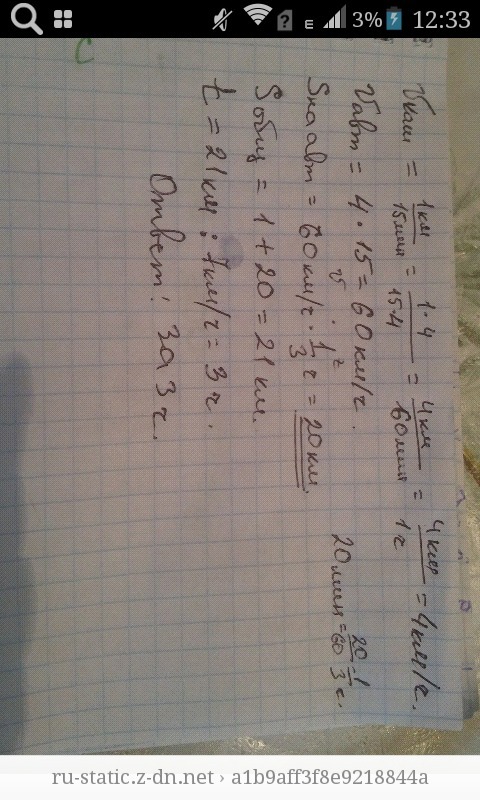 3% 12:33
Vкам = 1 км / 15 мин = 1·4 / 15·4 = 4 км / 60 мин = 4 км / 1 ч = 4 км/ч.
Vавт = 4 · 15 = 60 км/ч.
20 мин = 20/60 = 1/3 ч.
Sна авт = 60 км/ч · 1/3 ч = 20 км.
Sобщ = 1 + 20 = 21 км.
t = 21 км : 7 км/ч = 3 ч.
Ответ: за 3 ч.
ru-static.z-dn.net › a1b9aff3f8e9218844a